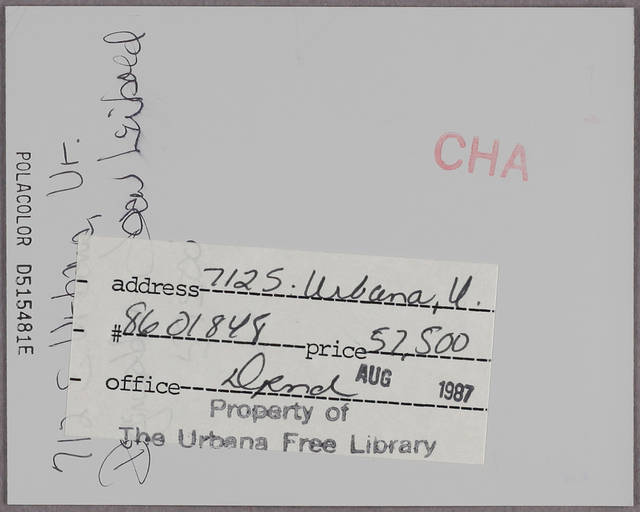 CHA
POLACOLOR D515481E
712 S. Urbana, Ur.
address 712 S. Urbana, U.
# 8601848 price 52,500
office
AUG 1987
Property of
The Urbana Free Library